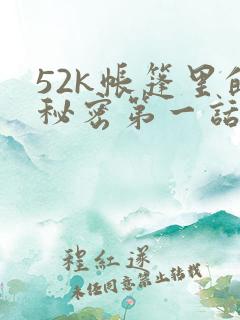 52k帳篷里的
秘密第一話
程紅遂
未经同意禁止转载